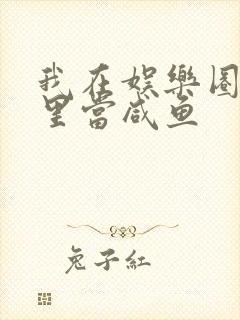 我在娱樂圈
里當咸鱼
兔子紅